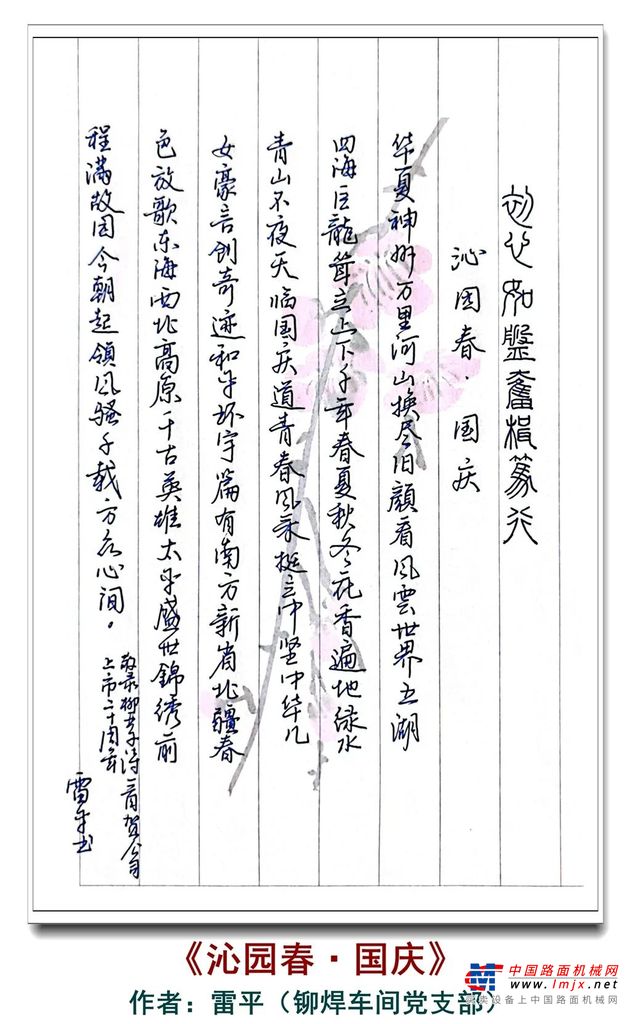 初心如磐奮楫篤行
沁园春·国庆
华夏神州万里河山换尽旧顔看风雲世界五湖
四海巨龍耸立上下千年春夏秋冬花香遍地绿水
青山不夜天临国庆道青春风采挺立中坚中华儿
女豪言创奇迹和平环宇篇有南方新省北疆春
色放歌东海西北高原千古英雄太平盛世錦绣前
程满故园今朝起领风骚千载方心间。
敬录柳诗一首贺公司
上市二十周年
雷平书
《沁园春·国庆》
作者：雷平（铆焊车间党支部）
中国路面机械网
www.lmjx.net
买卖设备上中国路面机械网